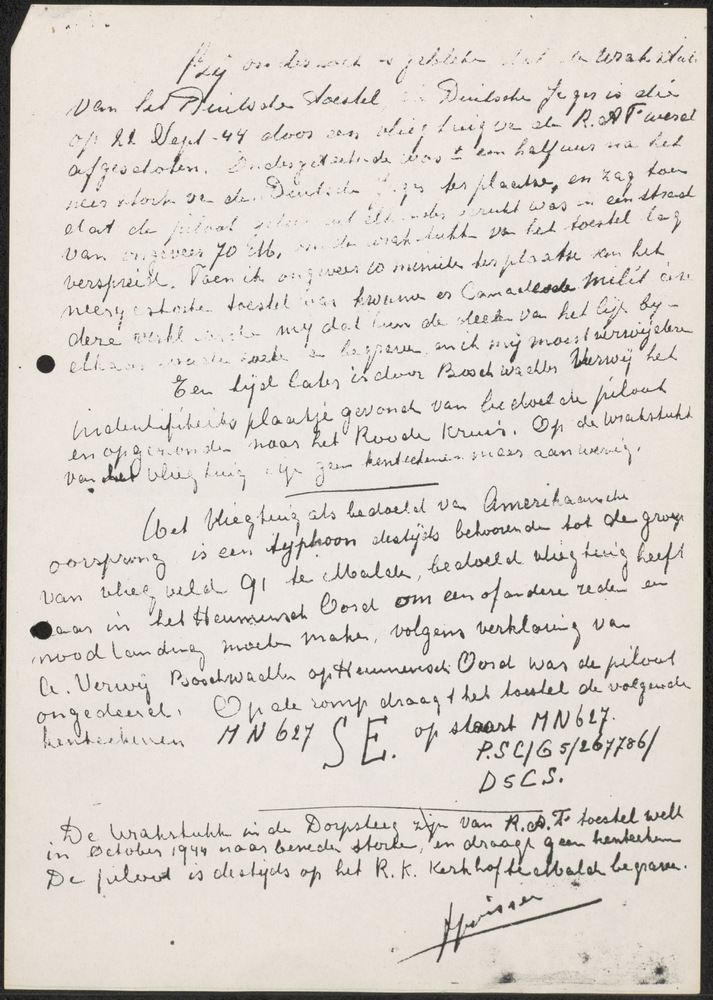 Bij onderzoek is gebleken dat de wrakstukk
van het Duitsche toestel, Duitsche Jager is die
op 22 Sept-44 door een vliegtuig van de R.A.F werd
afgeschoten. Ondergeteekende was ± een half uur na het
neerstorten van den Duitsche Jager ter plaatse, en zag toen
dat de piloot uit elkander gerukt was in een straal
van ongeveer 70 M. en de wrakstukk van het toestel lag
verspreid. Toen ik ongeveer 10 minuten ter plaatse van het
neergestorte toestel was kwamen er Canadeesde milit
deze my dat hun de deelen van het lijk by-
elkaar en begraven, en ik mij moest verwijderen
Een tijd later is door Boschwachter Verwij het
indentifitie plaatje gevonden van bedoelde piloot
en opgezonden naar het Roode Kruis. Op de wrakstukk
van het vliegtuig zijn geen kenteekenen meer aanwezig.
Het vliegtuig als bedoeld van Amerikaansche
oorsprong is een typhoon destijds behoorende tot de groep
van vliegveld 91 te Malden, bedoeld vliegtuig heeft
daar in het Heumensch Oord om een of andere reden en
noodlanding moeten maken, volgens verklaring van
A. Verwij Boschwachter op Heumensch Oord was de piloot
ongedeerd. Op de romp draagt het toestel de volgende
kenteekenen MN627 SE. op staart MN627.
P.SC/G5/267786/
DSCS.
De wrakstukk in de Dorpsteeg zijn van R.A.F toestel welk
in October 1944 naar beneden storte, en draagt geen kenteeken
De piloot is destijds op het R.K. Kerkhof te Malden begraven.